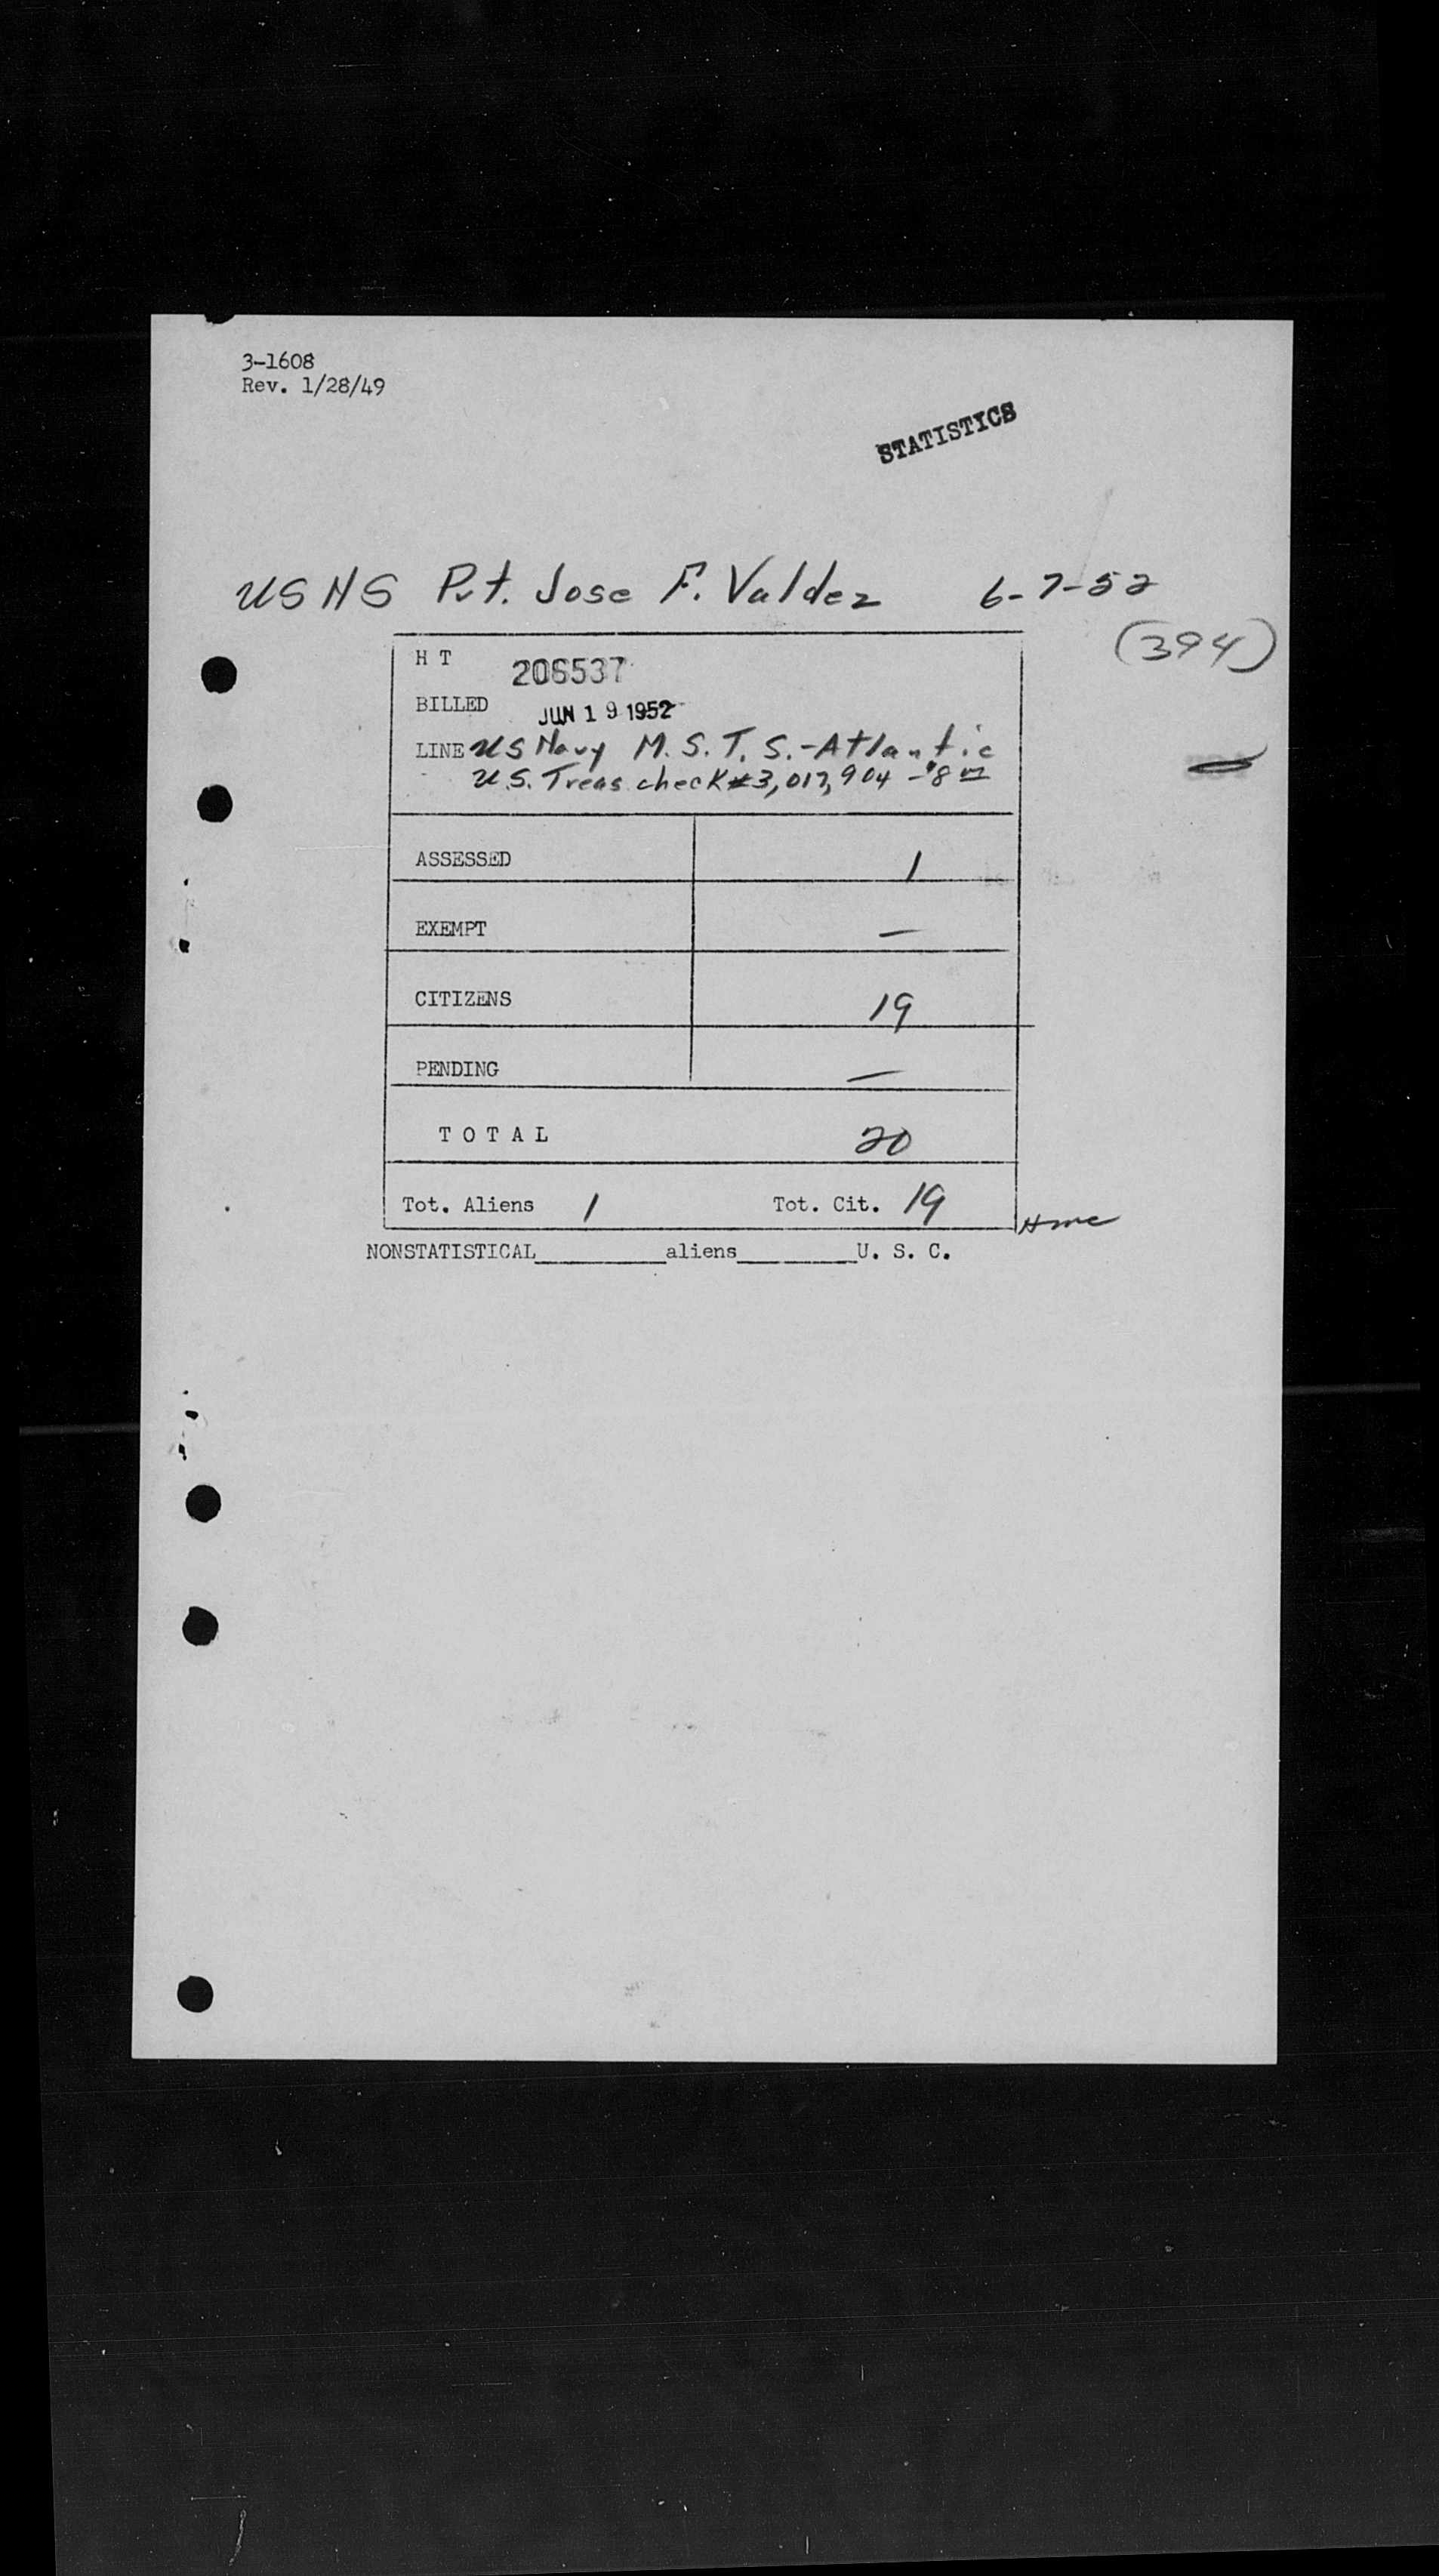 3-1608
Rev. 1/28/49
STATISTICS
USNS Pvt. Jose F. Valdez 6-7-52
(394)
H T 206537
BILLED JUN 19 1952
LINE US Navy M.S.T.S.-Atlantic
U.S. Treas. check #3,017,904 - $8
ASSESSED 1
EXEMPT —
CITIZENS 19
PENDING —
T O T A L 20
Tot. Aliens 1 Tot. Cit. 19
NONSTATISTICAL________aliens________U. S. C.